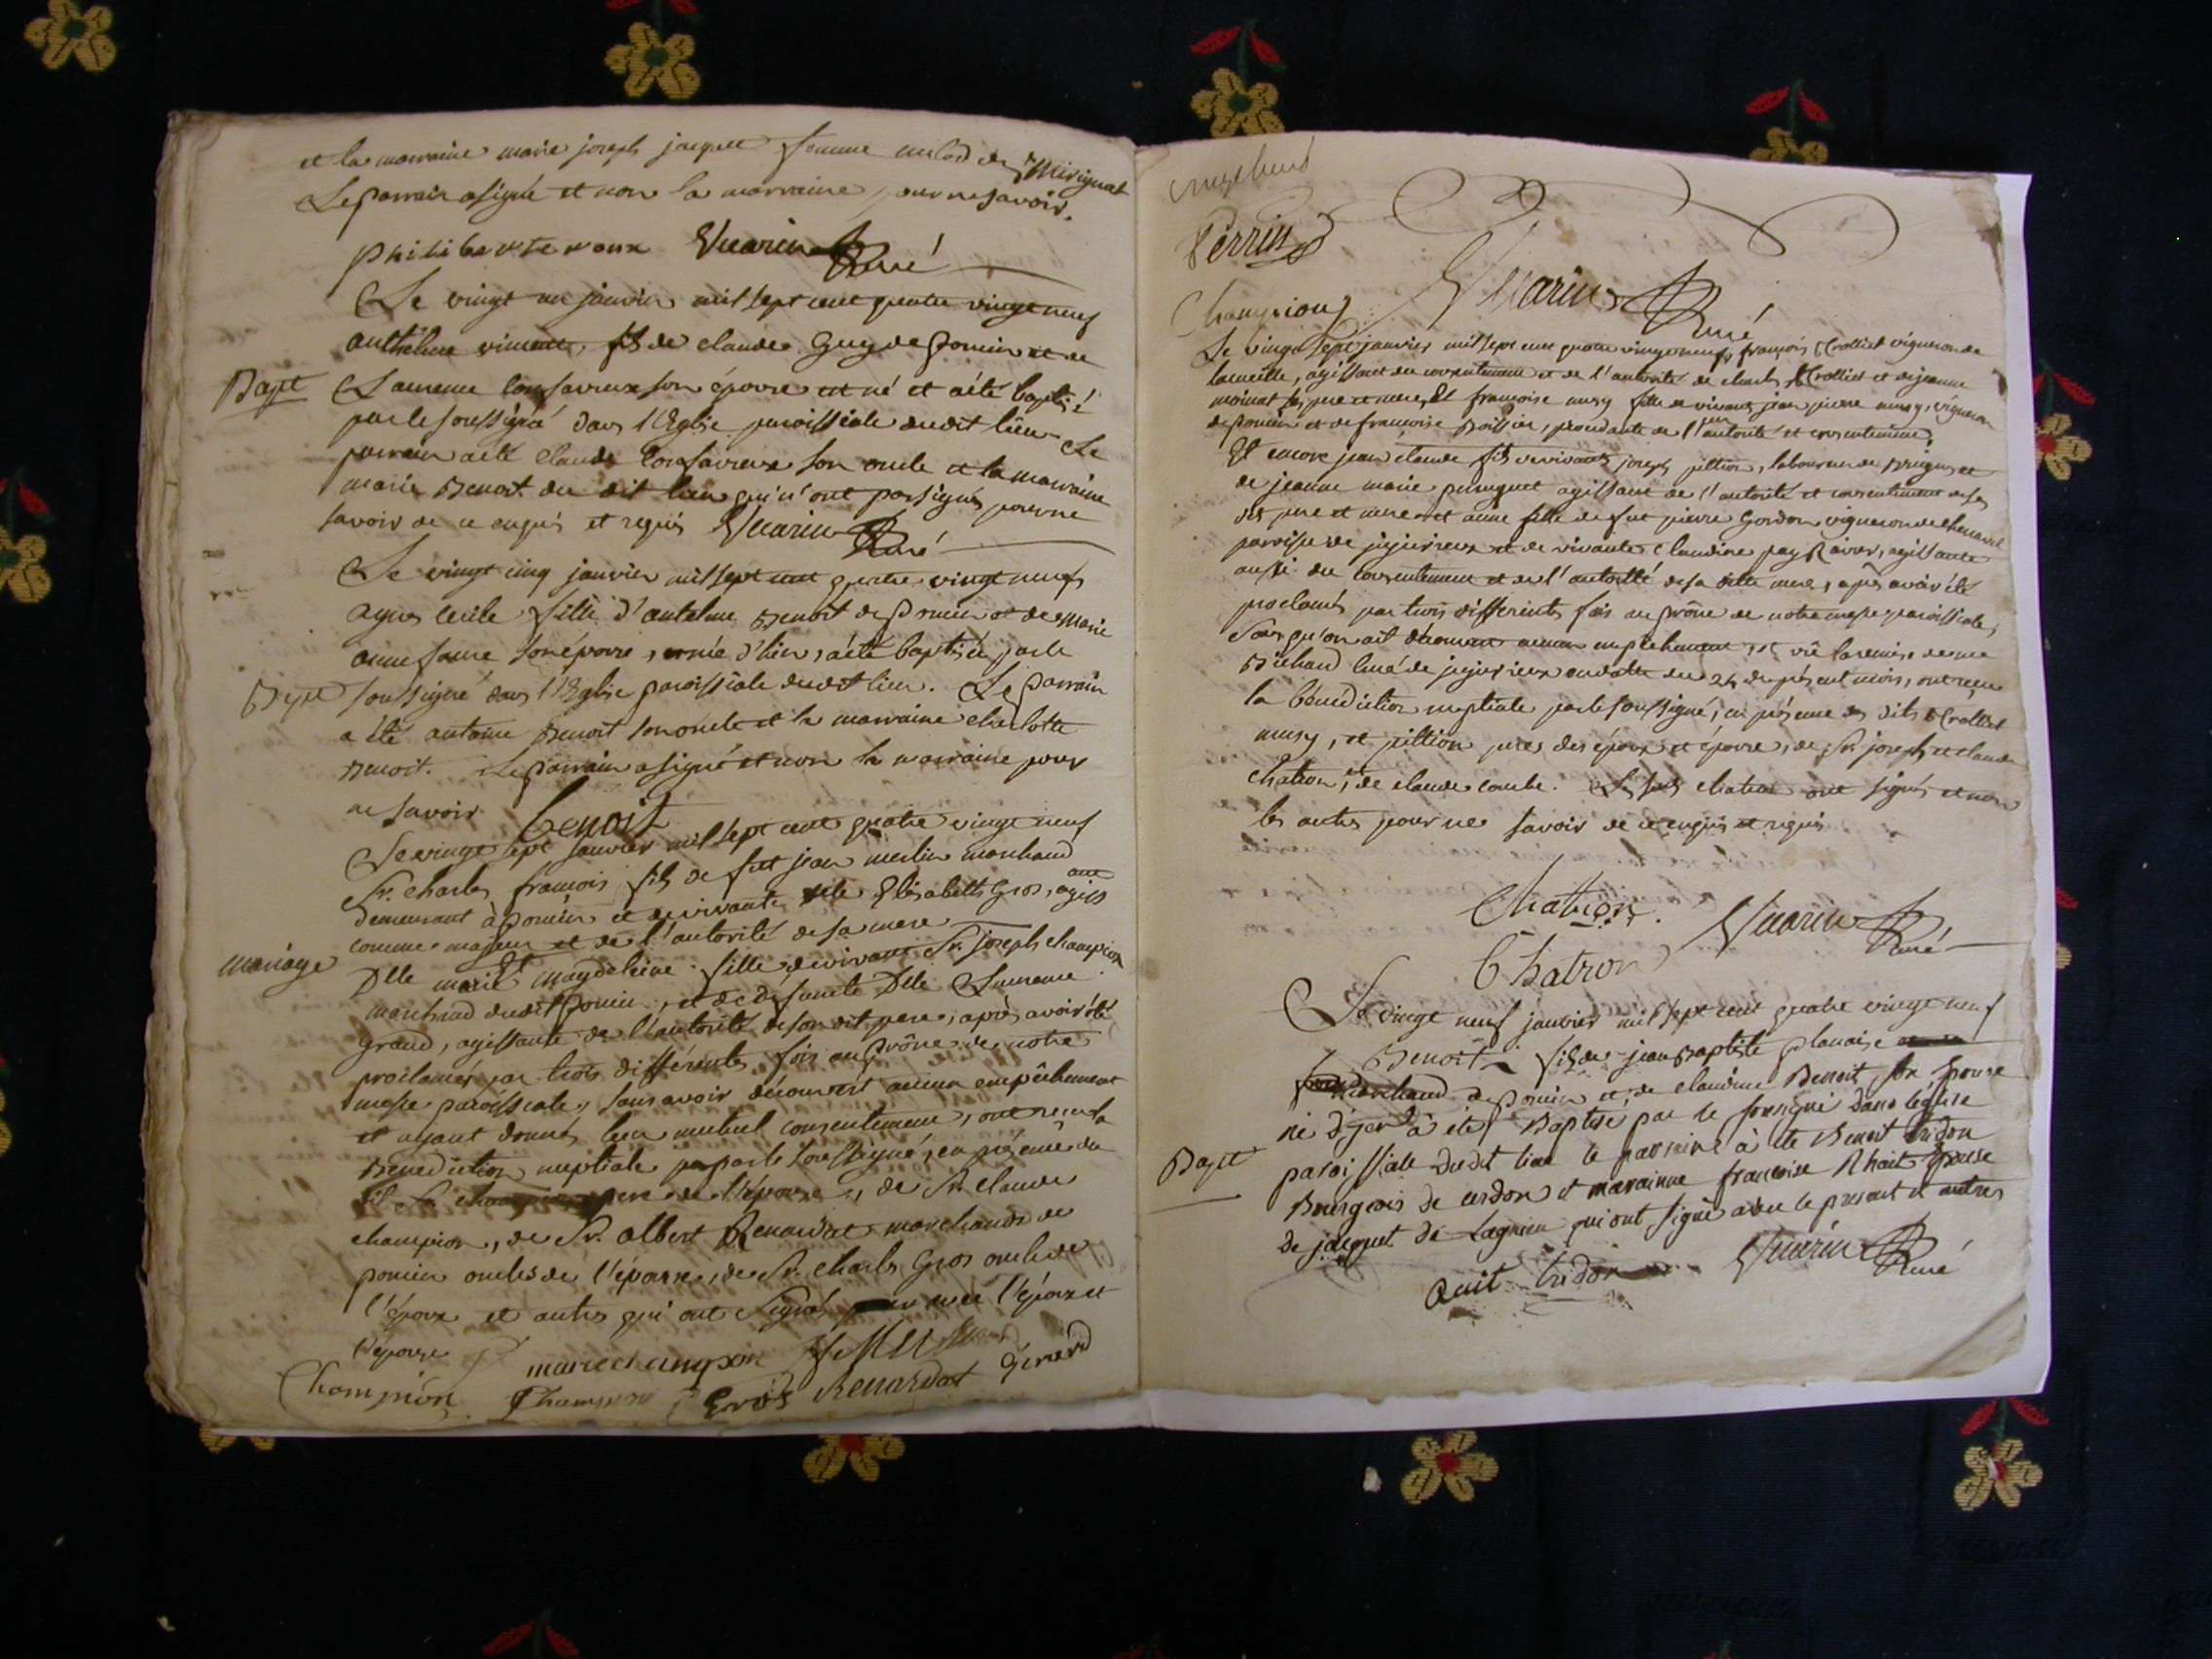 et la marraine marie joseph jacquet femme de Mérignat
Le parrain a signé et non la marraine pour ne savoir.
philiberte roux Vuarin Curé
Le vingt un janvier mil sept cent quatre vingt neuf
anthelme vincent, fils de claude Guy de poncin et de
Bapt
Laurence Consavreux son épouse est né et a été baptisé
par le soussigné dans l'Eglise paroissiale dudit lieu Le
parrain a été claude Consavreux son oncle et la marraine
marie Benoit du dit lieu qui n'ont pas signés pour ne
savoir de ce enquis et requis Vuarin Curé
Le vingt cinq janvier mil sept cent quatre vingt neuf
agnes cecile fille d'antelme Benoit de poncin et de marie
anne son épouse, née d'hier, a été baptisée par le
Bapt
soussigné dans l'Eglise paroissiale dudit lieu. Le parrain
a été antoine Benoit son oncle et la marraine charlotte
Benoit. Le parrain a signé et non la marraine pour
ne savoir benoit
Le vingt sept janvier mil sept cent quatre vingt neuf
Sr. charles francois fils de fut jean merlin marchand
demeurant à poncin et de vivante Elisabeth Gros, agissant
comme majeur et de l'autorité de sa mere
mariage
Et Dlle marie magdeleine fille de vivant Sr. joseph champion
marchand dudit poncin, et de défuncte Dlle Laurence
Grand, agissante de l'autorité de son dit pere, après avoir été
proclamés par trois différentes fois au prône de notre
messe paroissiale, sans avoir découvert aucun empêchement
et ayant donnés leur mutuel consentement, ont reçu la
Benediction nuptiale par le soussigné, en présence du
dit Sr. champion pere de l'épouse, de Sr. claude
champion, de Sr. albert Renardat marchands de
poncin oncles de l'épouse, de Sr. charles Gros oncle de
l'époux et autres qui ont signés avec l'époux et
l'épouse
marie champion
Champion Champion Gros Renardat Girard
Perrin
Champion Vuarin Curé
Le vingt sept janvier mil sept cent quatre vingt neuf, françois Crolliet vigneron de
, agissant du consentement et de l'autorité de charles Crolliet et de jeanne
ses pere et mere, Et françoise musy fille de vivants jean pierre musy, vigneron
de poncin et de francoise, procedante de l'autorité et consentement,
Et encore jean claude fils de vivants joseph pittion, laboureur de et
de jeanne marie agissant de l'autorité et consentement de ses
pere et mere et anne fille de fut pierre Gordon vigneron de
paroisse de jujurieux et de vivante claudine, agissante
aussi du consentement et de l'autorité de sa dite mere, après avoir été
proclamés par trois différentes fois au prône de notre messe paroissiale,
sans qu'on ait découvert aucun empêchement, et vû la remise de mr
Bichaud curé de jujurieux en datte du 24 du présent mois, ont reçu
la bénédiction nuptiale par le soussigné, en présence des dits Crolliet
musy, et pittion peres des époux et épouse, de Sr. joseph et claude
chatron, et de claude combe. Les Srs chatron ont signés et non
les autres pour ne savoir de ce enquis et requis
Chatron. Vuarin Curé
Chatron
Le vingt neuf janvier mil sept cent quatre vingt neuf
Benoit fils de jean Baptiste planaise
marchand de poncin et de claudine Benoit son Epouse
né d'yer à été Baptisé par le sousigné dans l'église
Bapt
paroissiale dudit lieu le parraine à été Benoit tridon
Bourgeois de cerdon et marainne francoise Epouse
de jacquet de Lagnieu qui ont signé avec le present et autres
tridon Vuarin Curé